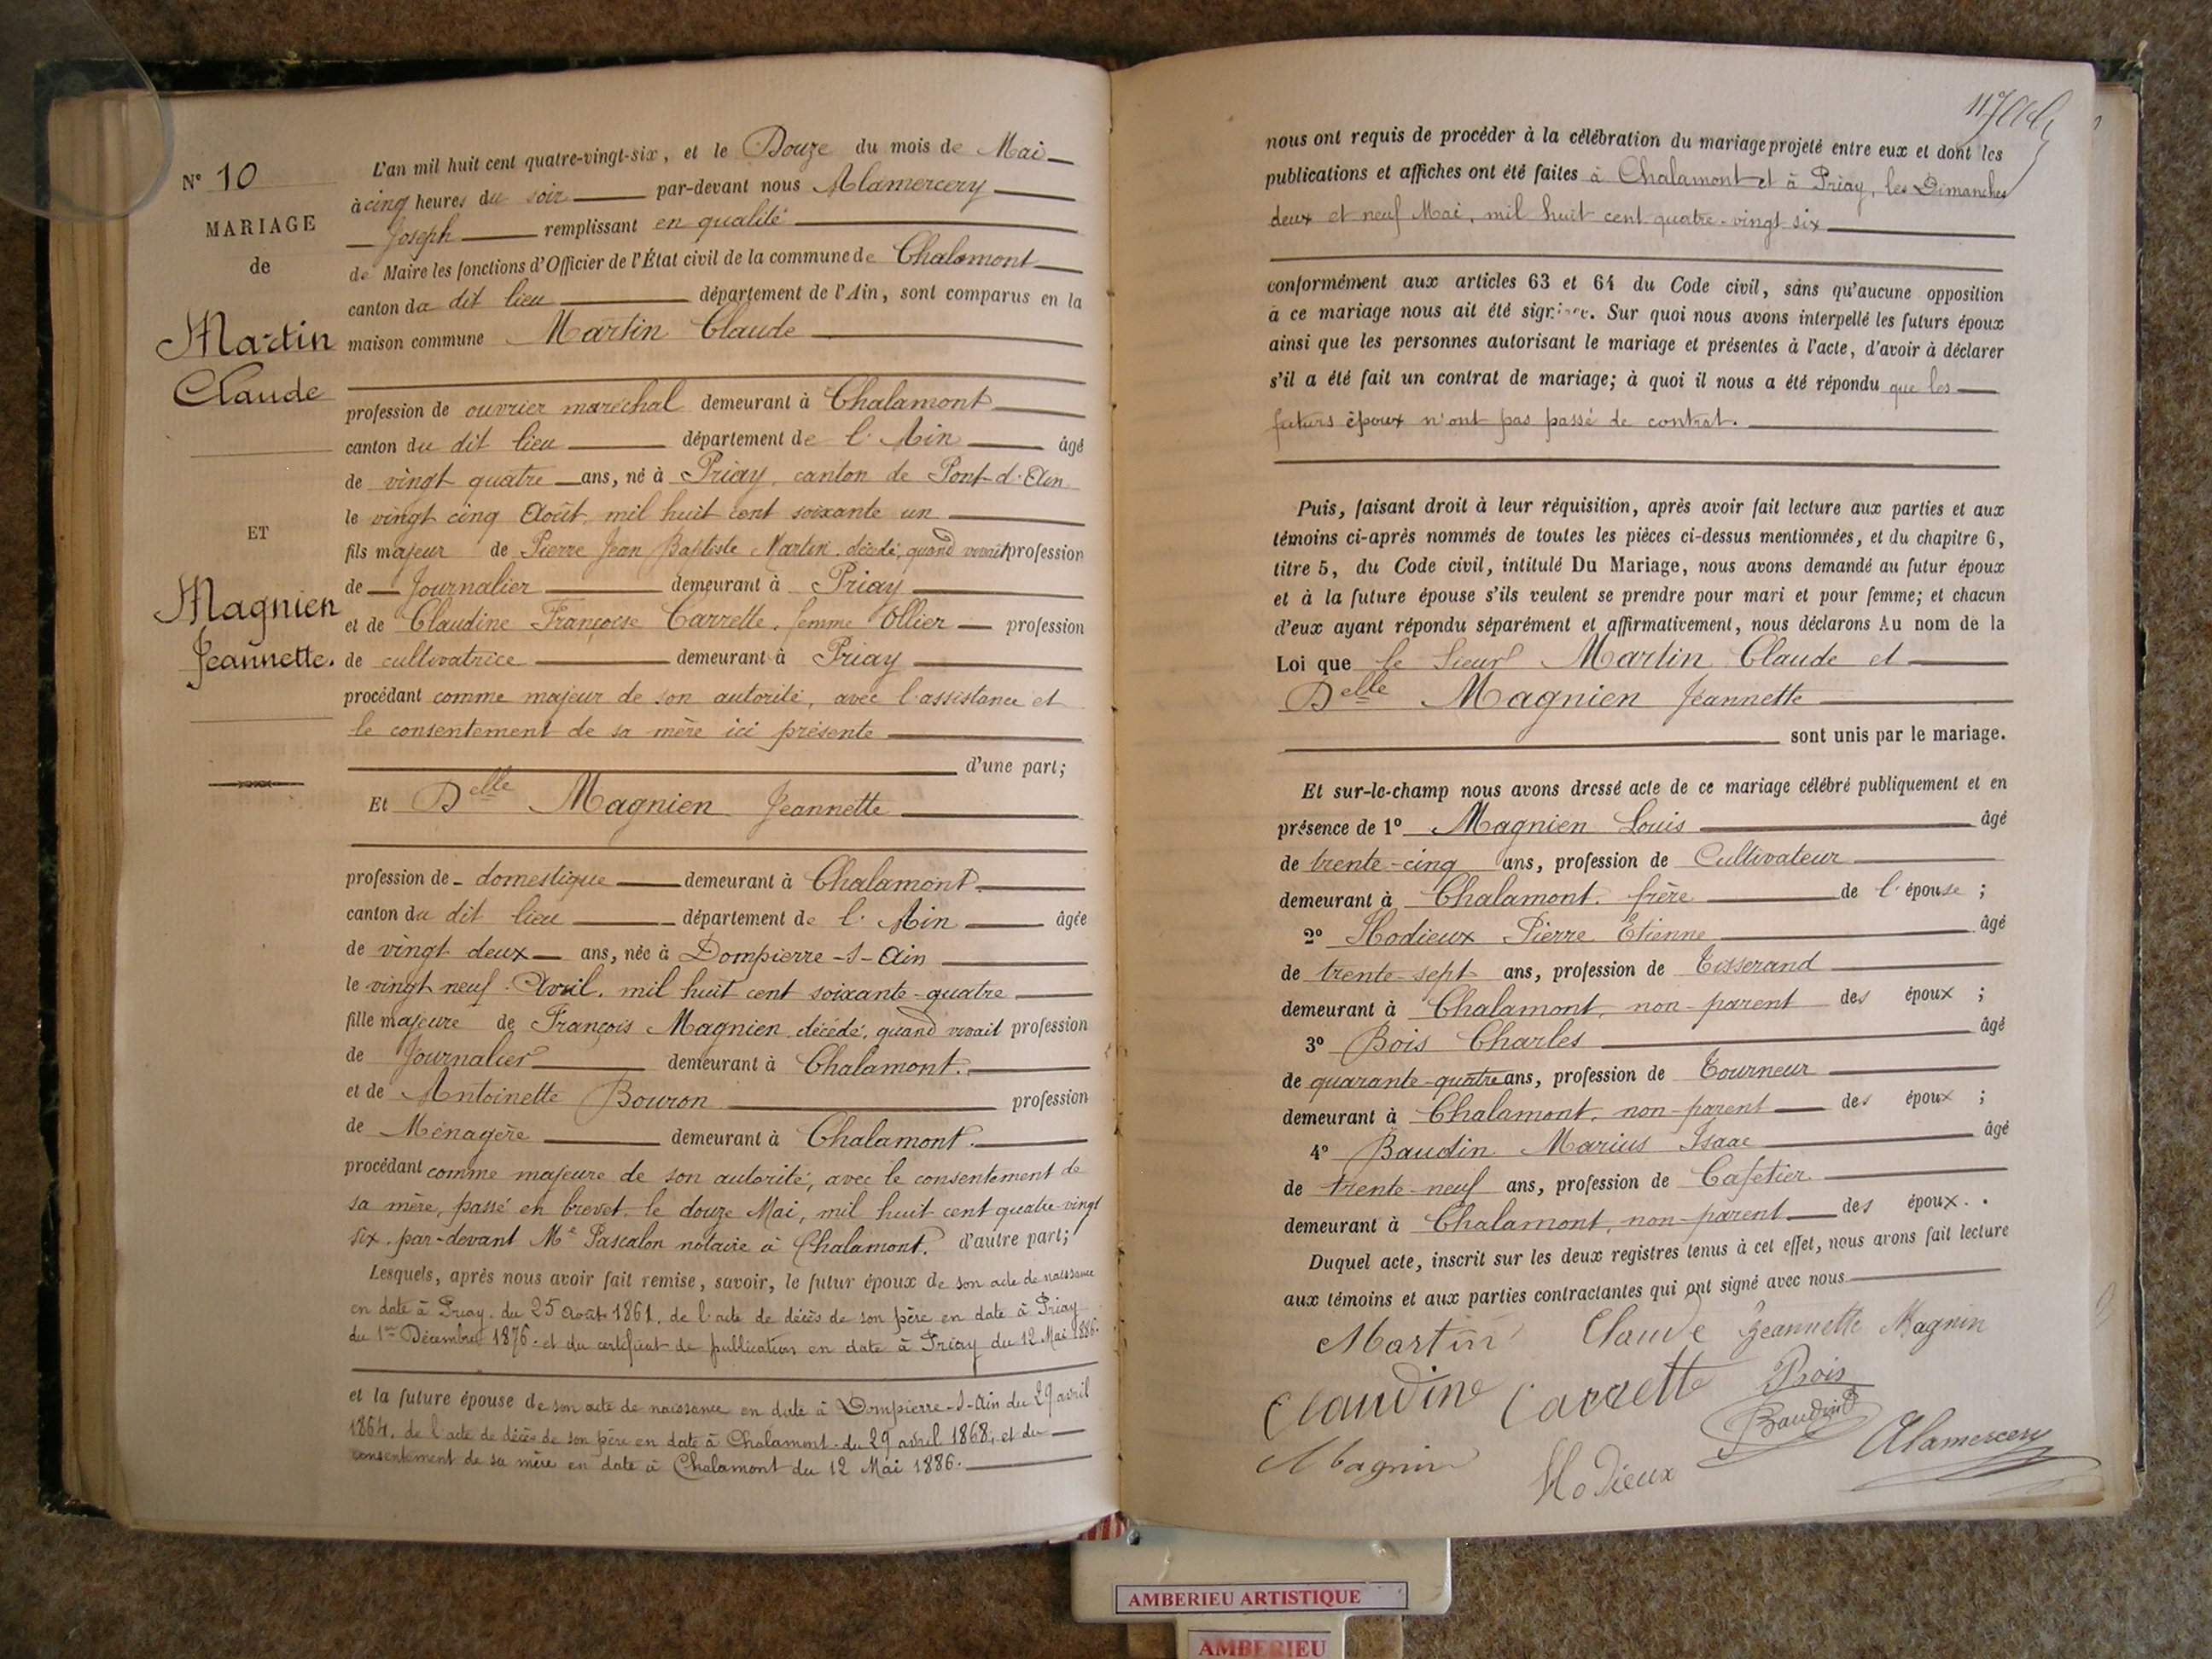 N° 10
MARIAGE
de
Martin
Claude
ET
Magnien
Jeannette.
L'an mil huit cent quatre-vingt-six, et le Douze du mois de Mai
à cinq heures du soir par-devant nous Alamercery
Joseph remplissant en qualité
de Maire les fonctions d'Officier de l'État civil de la commune de Chalamont
canton du dit lieu département de l'Ain, sont comparus en la
maison commune Martin Claude
profession de ouvrier maréchal demeurant à Chalamont
canton du dit lieu département de l'Ain âgé
de vingt quatre ans, né à Priay, canton de Pont-d'Ain
le vingt cinq Août, mil huit cent soixante un
fils majeur de Pierre Jean Baptiste Martin, décédé, quand vivait profession
de Journalier demeurant à Priay
et de Claudine Françoise Carrette, femme Ollier profession
de cultivatrice demeurant à Priay
procédant comme majeur de son autorité, avec l'assistance et
le consentement de sa mère ici présente
d'une part;
Et Delle Magnien Jeannette
profession de domestique demeurant à Chalamont.
canton du dit lieu département de l'Ain âgée
de vingt deux ans, née à Dompierre-s-Ain
le vingt neuf Avril, mil huit cent soixante-quatre
fille majeure de François Magnien, décédé, quand vivait profession
de Journalier demeurant à Chalamont.
et de Antoinette Bouron profession
de Ménagère demeurant à Chalamont.
procédant comme majeure de son autorité, avec le consentement de
sa mère, passé en brevet, le douze Mai, mil huit cent quatre-vingt
six, par-devant Me Pascalon notaire à Chalamont. d'autre part;
Lesquels, après nous avoir fait remise, savoir, le futur époux de son acte de naissance
en date à Priay, du 25 Août 1861, de l'acte de décès de son père en date à Priay
du 1er Décembre 1876, et du certificat de publication en date à Priay du 12 Mai 1886.
et la future épouse de son acte de naissance en date à Dompierre-s-Ain du 29 avril
1864, de l'acte de décès de son père en date à Chalamont du 29 avril 1868, et du
consentement de sa mère en date à Chalamont du 12 Mai 1886.
nous ont requis de procéder à la célébration du mariage projeté entre eux et dont les
publications et affiches ont été faites à Chalamont et à Priay, les Dimanches
deux et neuf Mai, mil huit cent quatre-vingt six
conformément aux articles 63 et 64 du Code civil, sans qu'aucune opposition
à ce mariage nous ait été signifiée. Sur quoi nous avons interpellé les futurs époux
ainsi que les personnes autorisant le mariage et présentes à l'acte, d'avoir à déclarer
s'il a été fait un contrat de mariage; à quoi il nous a été répondu que les
futurs époux n'ont pas passé de contrat.
Puis, faisant droit à leur réquisition, après avoir fait lecture aux parties et aux
témoins ci-après nommés de toutes les pièces ci-dessus mentionnées, et du chapitre 6,
titre 5, du Code civil, intitulé Du Mariage, nous avons demandé au futur époux
et à la future épouse s'ils veulent se prendre pour mari et pour femme; et chacun
d'eux ayant répondu séparément et affirmativement, nous déclarons Au nom de la
Loi que le Sieur Martin Claude et
Delle Magnien Jeannette
sont unis par le mariage.
Et sur-le-champ nous avons dressé acte de ce mariage célébré publiquement et en
présence de 1° Magnien Louis âgé
de trente-cinq ans, profession de Cultivateur
demeurant à Chalamont, frère de l'épouse ;
2° Hodieux Pierre Etienne âgé
de trente-sept ans, profession de Tisserand
demeurant à Chalamont, non-parent des époux ;
3° Bois Charles âgé
de quarante-quatre ans, profession de Tourneur
demeurant à Chalamont, non-parent des époux ;
4° Baudin Marius Isaac âgé
de trente-neuf ans, profession de Cafetier
demeurant à Chalamont, non-parent des époux.
Duquel acte, inscrit sur les deux registres tenus à cet effet, nous avons fait lecture
aux témoins et aux parties contractantes qui ont signé avec nous
Martin Claude Jeannette Magnin
Claudine Carrette Bois
Baudin
Magnin Hodieux Alamercery
AMBERIEU ARTISTIQUE
AMBERIEU